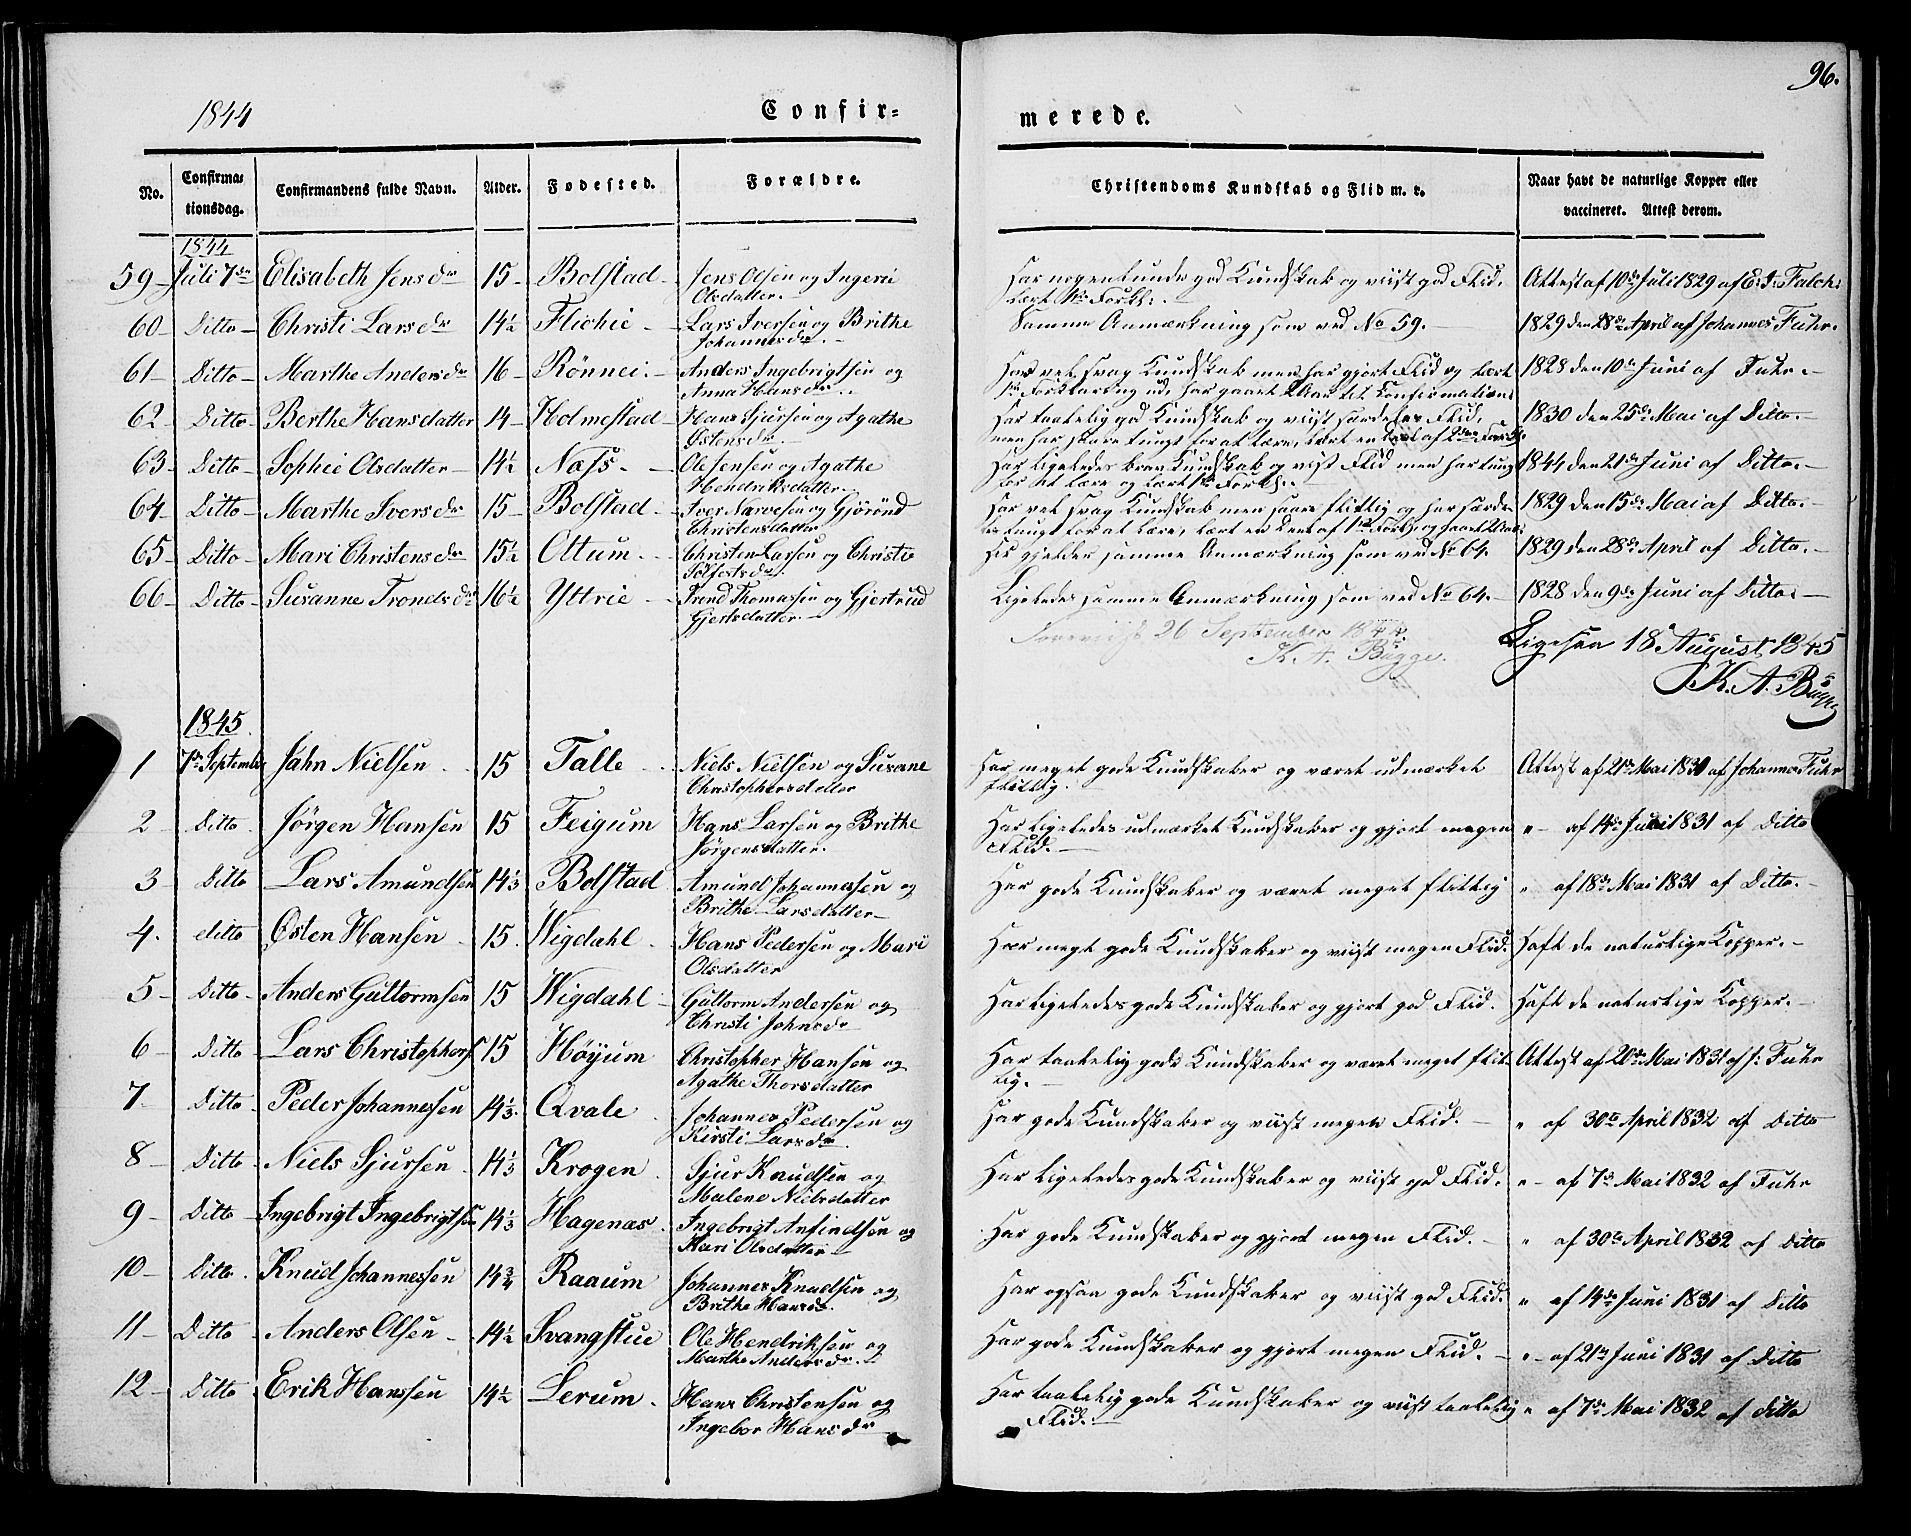 96.
1844 Confirmerede.
No. Confirmationsdag. Confirmandens fulde Navn. Alder. Fødested. Forældre. Christendoms Kundskab og Flid m. v. Naar havt de naturlige Kopper eller vaccineret. Attest derom.
1844
59 Juli 7de Elisabeth Jensdr 15 Bolstad Jens Olsen og Ingeri Olsdatter. Har nogenlunde god Kundskab og viist god Flid. lært Forkl: Attest af 10de Juli 1829 af E. I. Falch:
60 Ditto Christi Larsdr 14½ Flichie Lars Iversen og Brithe Johannesdr. Samme Anmærkning som ved No 59. 1829 den 28de April af Johannes Fuhr.
61 Ditto Marthe Andersdr 16 Rönnei. Anders Ingebrigtsen og Anna Hansdr. Har vel svag Kundskab men har gjort Flid og lært Forklaring ud, har gaaet til Confirmation 1828 den 10de Juni af Fuhr.
62 Ditto Berthe Hansdatter 14 Holmestad Hans Sjursen og Agathe Østensdr. Har taalelig god Kundskab og viist særdeles Flid, men har svare tungt for at lære, lært en Deel af 2den Forkl. 1830 den 25de Mai af Ditto.
63 Ditto Sophie Olsdatter 14½ Næss. Ole Jensen og Agathe Hendriksdatter. Har ligeledes brav Kundskab og viist Flid men har tungt for at lære og lært Forkl. 1844 den 21de Juni af Ditto.
64 Ditto Marthe Iversdr 15 Bolstad. Iver Narvesen og Gjörönd Christensdatter Har vel svag Kundskab men saare flittig og har særdeles tungt for at lære, lært en Deel af Forkl, og gaaet 1829 den 15de Mai af Ditto.
65 Ditto Mari Christensdr 15½ Ottum. Christen Larsen og Christie Sölfestsdr. Her gjelder samme Anmærkning som ved No 64. 1829 den 28de April af Ditto.
66 Ditto Susanne Trondsdr 16½ Yttrie Trond Thomassen og Gjertrud Gjertsdatter. Ligeledes samme Anmærkning som ved No 64. 1828 den 9de Juni af Ditto.
Foreviist 26 September 1844.
K. A. Bugge.
Ligesaa 18 August 1845
K. A. Bugge
1845
1 7de September Jahn Nielsen 15 Talle Niels Nielsen og Susane Christophersdatter Har meget gode Kundskaber og været udmærket flittig. Attest af 21de Mai 1830 af Johannes Fuhr
2 Ditto Jörgen Hansen 15 Feigum Hans Larsen og Brithe Jörgensdatter. Har ligeledes udmærket Kundskaber og gjort megen Flid. " af 14de Juni 1831 af Ditto
3 Ditto Lars Amundsen 14⅓ Bolstad Amund Johannessen og Brithe Larsdatter Har gode Kundskaber og været meget flittig " af 18de Mai 1831 af Ditto.
4. ditto Østen Hansen 15. Wigdahl Hans Pedersen og Mari Olsdatter Har megt gode Kundskaber og viist megen Flid. Haft de naturlige Kopper.
5 Ditto Anders Guttormsen 15 Wigdahl Guttorm Andersen og Christi Johnsdr Har ligeledes gode Kundskaber og gjort god Flid. Haft de naturlige Kopper.
6 Ditto Lars Christophers 15 Höyum Christopher Hansen og Agathe Thorsdatter Har taalelig gode Kundskaber og været meget flittig. Attest af 20de Mai 1831 af J: Fuhr
7 Ditto Peder Johannessen 14⅓ Qvale Johannes Pedersen og Kirsti Larsdr. Har gode Kundskaber og viist megen Flid. " af 30te April 1832 af Ditto
8 Ditto Niels Sjursen 14⅓ Krogen Sjur Knudsen og Malene Nielsdatter Har ligeledes gode Kundskaber og viist god Flid. " af 7de Mai 1832 af Fuhr
9 Ditto Ingebrigt Ingebrigtsen 14⅓ Hagenæs. Ingebrigt Anfindsen og Kari Olsdatter Har gode Kundskaber og gjort megen Flid. " af 30te April 1832 af Ditto
10 Ditto. Knud Johannessen 14¾ Raaum Johannes Knudsen og Brithe Hansdr. Har ogsaa gode Kundskaber og viist god Flid. " af 14de Juni 1831 af Ditto
11 Ditto Anders Olsen 14½ Svangstue Ole Hendriksen og Marthe Andersdr. Har gode Kundskaber og gjort megen Flid. " af 21de Juni 1831 af Ditto
12 Ditto Erik Hanssen 14½ Lerum. Hans Christensen og Ingebor Hansdr Har taalelig gode Kundskaber og viist taalelig Flid. " af 7de Mai 1832 af Ditto